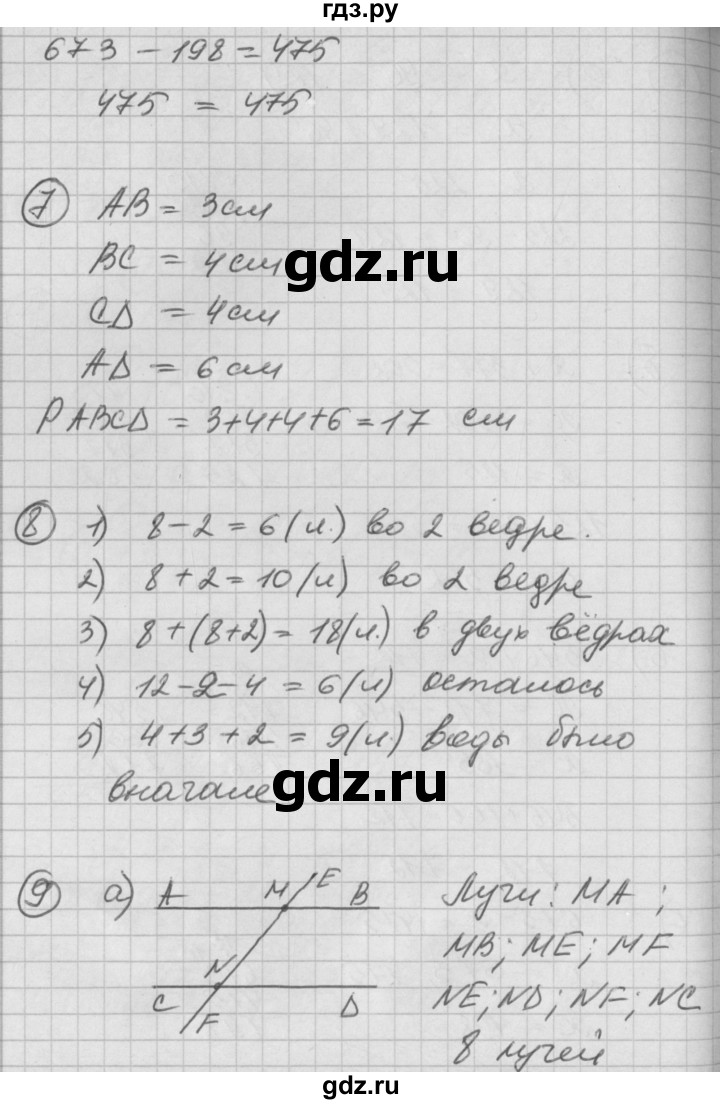 гдз.ру
673 - 198 = 475
475 = 475
7 AB = 3см
BC = 4см
gdz.ru
CD = 4см
AD = 6см
P ABCD = 3+4+4+6=17 см
8 1) 8-2 = 6(л.) во 2 ведре.
2) 8+2=10(л) во 2 ведре
3) 8+(8+2)= 18(л.) в двух вёдрах
4) 12-2-4 = 6(л) осталось
5) 4+3+2 = 9(л) воды было
вначале
gdz.ru
9 а) A M E B Лучи: MA;
MB; ME; MF
N NE; ND; NF; NC
C F D
8 лучей
gdz.ru